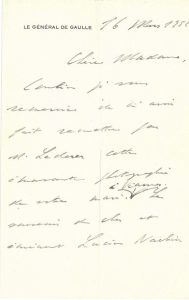 LE GÉNÉRAL DE GAULLE
16 Mars
Chère Madame,
Combien je vous
remercie de m'avoir
fait remettre par
M. Lederer cette
émouvante photographie
de votre mari. Le
souvenir de cher et
Lucien